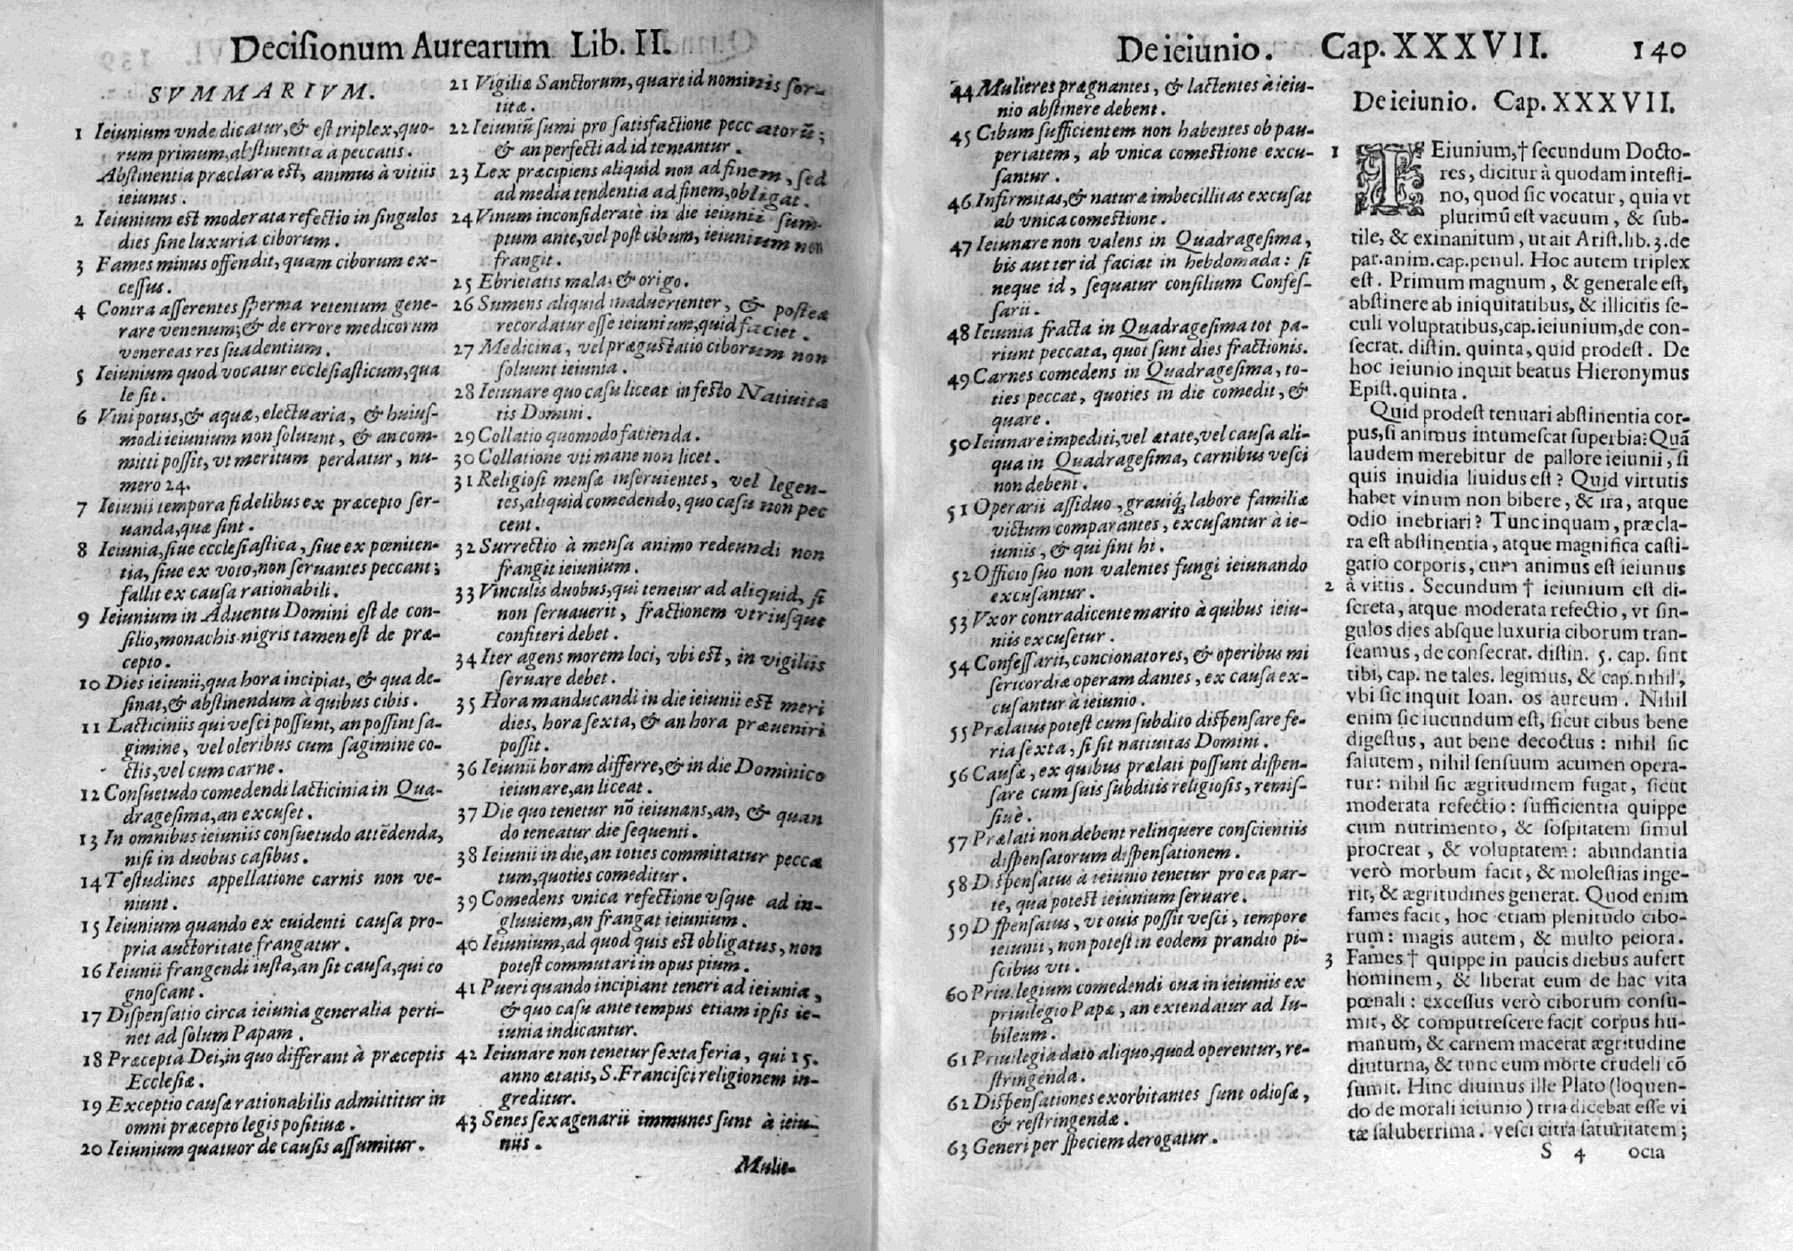 Decisionum Aurearum Lib. II.
SVMMARIVM.
1 Ieiunium vnde dicatur, & est triplex, quo-
rum primum, abstinentia à peccatis.
Abstinentia præclara est, animus à vitiis
ieiunus.
2 Ieiunium est moderata refectio in singulos
dies sine luxuria ciborum.
3 Fames minus offendit, quam ciborum ex-
cessus.
4 Contra asserentes sperma retentum gene-
rare venenum; & de errore medicorum
venereas res suadentium.
5 Ieiunium quod vocatur ecclesiasticum, qua
le sit.
6 Vini potus, & aquæ, electuaria, & huius-
modi ieiunium non soluunt, & an com-
mitti possit, vt meritum perdatur, nu-
mero 24.
7 Ieiunii tempora fidelibus ex præcepto ser-
uanda, quæ sint.
8 Ieiunia, siue ecclesiastica, siue ex pœniten-
tia, siue ex voto, non seruantes peccant;
fallit ex causa rationabili.
9 Ieiunium in Aduentu Domini est de con-
silio, monachis nigris tamen est de præ-
cepto.
10 Dies ieiunii, qua hora incipiat, & qua de-
sinat, & abstinendum à quibus cibis.
11 Lacticiniis qui vesci possunt, an possint sa-
gimine, vel oleribus cum sagimine co-
ctis, vel cum carne.
12 Consuetudo comedendi lacticinia in Qua-
dragesima, an excuset.
13 In omnibus ieiuniis consuetudo attēdenda,
nisi in duobus casibus.
14 Testudines appellatione carnis non ve-
niunt.
15 Ieiunium quando ex euidenti causa pro-
pria auctoritate frangatur.
16 Ieiunii frangendi iusta, an sit causa, qui co
gnoscant.
17 Dispensatio circa ieiunia generalia perti-
net ad solum Papam.
18 Præcepta Dei, in quo differant à præceptis
Ecclesiæ.
19 Exceptio causæ rationabilis admittitur in
omni præcepto legis positiuæ.
20 Ieiunium quatuor de causis assumitur.
21 Vigiliæ Sanctorum, quare id nominis sor-
titæ.
22 Ieiuniū sumi pro satisfactione peccatorū;
& an perfecti ad id teneantur.
23 Lex præcipiens aliquid non ad finem, sed
ad media tendentia ad finem, obligat.
24 Vinum inconsideratè in die ieiunii sum-
ptum ante, vel post cibum, ieiunium non
frangit.
25 Ebrietatis mala, & origo.
26 Sumens aliquid inaduertenter, & postea
recordatur esse ieiunium, quid faciet.
27 Medicina, vel prægustatio ciborum non
soluunt ieiunia.
28 Ieiunare quo casu liceat in festo Natiuita
tis Domini.
29 Collatio quomodo facienda.
30 Collatione vti mane non licet.
31 Religiosi mensæ inseruientes, vel legen-
tes, aliquid comedendo, quo casu non pec
cent.
32 Surrectio à mensa animo redeundi non
frangit ieiunium.
33 Vinculis duobus, qui tenetur ad aliquid, si
non seruauerit, fractionem vtriusque
confiteri debet.
34 Iter agens morem loci, vbi est, in vigiliis
seruare debet.
35 Hora manducandi in die ieiunii est meri
dies, hora sexta, & an hora præueniri
possit.
36 Ieiunii horam differre, & in die Dominico
ieiunare, an liceat.
37 Die quo tenetur nō ieiunans, an, & quan
do teneatur die sequenti.
38 Ieiunii in die, an toties committatur pecca
tum, quoties comeditur.
39 Comedens vnica refectione vsque ad in-
gluuiem, an frangat ieiunium.
40 Ieiunium, ad quod quis est obligatus, non
potest commutari in opus pium.
41 Pueri quando incipiant teneri ad ieiunia,
& quo casu ante tempus etiam ipsis ie-
iunia indicantur.
42 Ieiunare non tenetur sexta feria, qui 15.
anno ætatis, S. Francisci religionem in-
greditur.
43 Senes sexagenarii immunes sunt à ieiu-
niis.
Mulie-
De ieiunio. Cap. XXXVII. 140
44 Mulieres prægnantes, & lactentes à ieiu-
nio abstinere debent.
45 Cibum sufficientem non habentes ob pau-
pertatem, ab vnica comestione excu-
santur.
46 Infirmitas, & naturæ imbecillitas excusat
ab vnica comestione.
47 Ieiunare non valens in Quadragesima,
bis aut ter id faciat in hebdomada: si
neque id, sequatur consilium Confes-
sarii.
48 Ieiunia fracta in Quadragesima tot pa-
riunt peccata, quot sunt dies fractionis.
49 Carnes comedens in Quadragesima, to-
ties peccat, quoties in die comedit, &
quare.
50 Ieiunare impediti, vel ætate, vel causa ali-
qua in Quadragesima, carnibus vesci
non debent.
51 Operarii assiduo, grauiq; labore familiæ
victum comparantes, excusantur à ie-
iuniis, & qui sint hi.
52 Officio suo non valentes fungi ieiunando
excusantur.
53 Vxor contradicente marito à quibus ieiu-
niis excusetur.
54 Confessarii, concionatores, & operibus mi
sericordiæ operam dantes, ex causa ex-
cusantur à ieiunio.
55 Prælatus potest cum subdito dispensare fe-
ria sexta, si sit natiuitas Domini.
56 Causæ, ex quibus prælati possunt dispen-
sare cum suis subditis religiosis, remis-
siuè.
57 Prælati non debent relinquere conscientiis
dispensatorum dispensationem.
58 Dispensatus à ieiunio tenetur pro ea par-
te, qua potest ieiunium seruare.
59 Dispensatus, vt ouis possit vesci, tempore
ieiunii, non potest in eodem prandio pi-
scibus vti.
60 Priuilegium comedendi oua in ieiuniis ex
priuilegio Papæ, an extendatur ad Iu-
bileum.
61 Priuilegia dato aliquo, quod operentur, re-
stringenda.
62 Dispensationes exorbitantes sunt odiosæ,
& restringendæ.
63 Generi per speciem derogatur.
De ieiunio. Cap. XXXVII.
1 IEiunium, † secundum Docto-
res, dicitur à quodam intesti-
no, quod sic vocatur, quia vt
plurimū est vacuum, & sub-
tile, & exinanitum, ut ait Arist. lib. 3. de
par. anim. cap. penul. Hoc autem triplex
est. Primum magnum, & generale est,
abstinere ab iniquitatibus, & illicitis se-
culi voluptatibus, cap. ieiunium, de con-
secrat. distin. quinta, quid prodest. De
hoc ieiunio inquit beatus Hieronymus
Epist. quinta.
Quid prodest tenuari abstinentia cor-
pus, si animus intumescat superbia? Quā
laudem merebitur de pallore ieiunii, si
quis inuidia liuidus est? Quid virtutis
habet vinum non bibere, & ira, atque
odio inebriari? Tunc inquam, præcla-
ra est abstinentia, atque magnifica casti-
gatio corporis, cum animus est ieiunus
2 à vitiis. Secundum † ieiunium est di-
screta, atque moderata refectio, vt sin-
gulos dies absque luxuria ciborum tran-
seamus, de consecrat. distin. 5. cap. sint
tibi, cap. ne tales. legimus, & cap. nihil,
vbi sic inquit Ioan. os aureum. Nihil
enim sic iucundum est, sicut cibus bene
digestus, aut bene decoctus: nihil sic
salutem, nihil sensuum acumen opera-
tur: nihil sic ægritudinem fugat, sicut
moderata refectio: sufficientia quippe
cum nutrimento, & sospitatem simul
procreat, & voluptatem: abundantia
verò morbum facit, & molestias inge-
rit, & ægritudines generat. Quod enim
fames facit, hoc etiam plenitudo cibo-
rum: magis autem, & multo peiora.
3 Fames † quippe in paucis diebus aufert
hominem, & liberat eum de hac vita
pœnali: excessus verò ciborum consu-
mit, & computrescere facit corpus hu-
manum, & carnem macerat ægritudine
diuturna, & tunc eum morte crudeli cō
sumit. Hinc diuinus ille Plato (loquen-
do de morali ieiunio) tria dicebat esse vi
tæ saluberrima. vesci citra saturitatem;
S 4 ocia